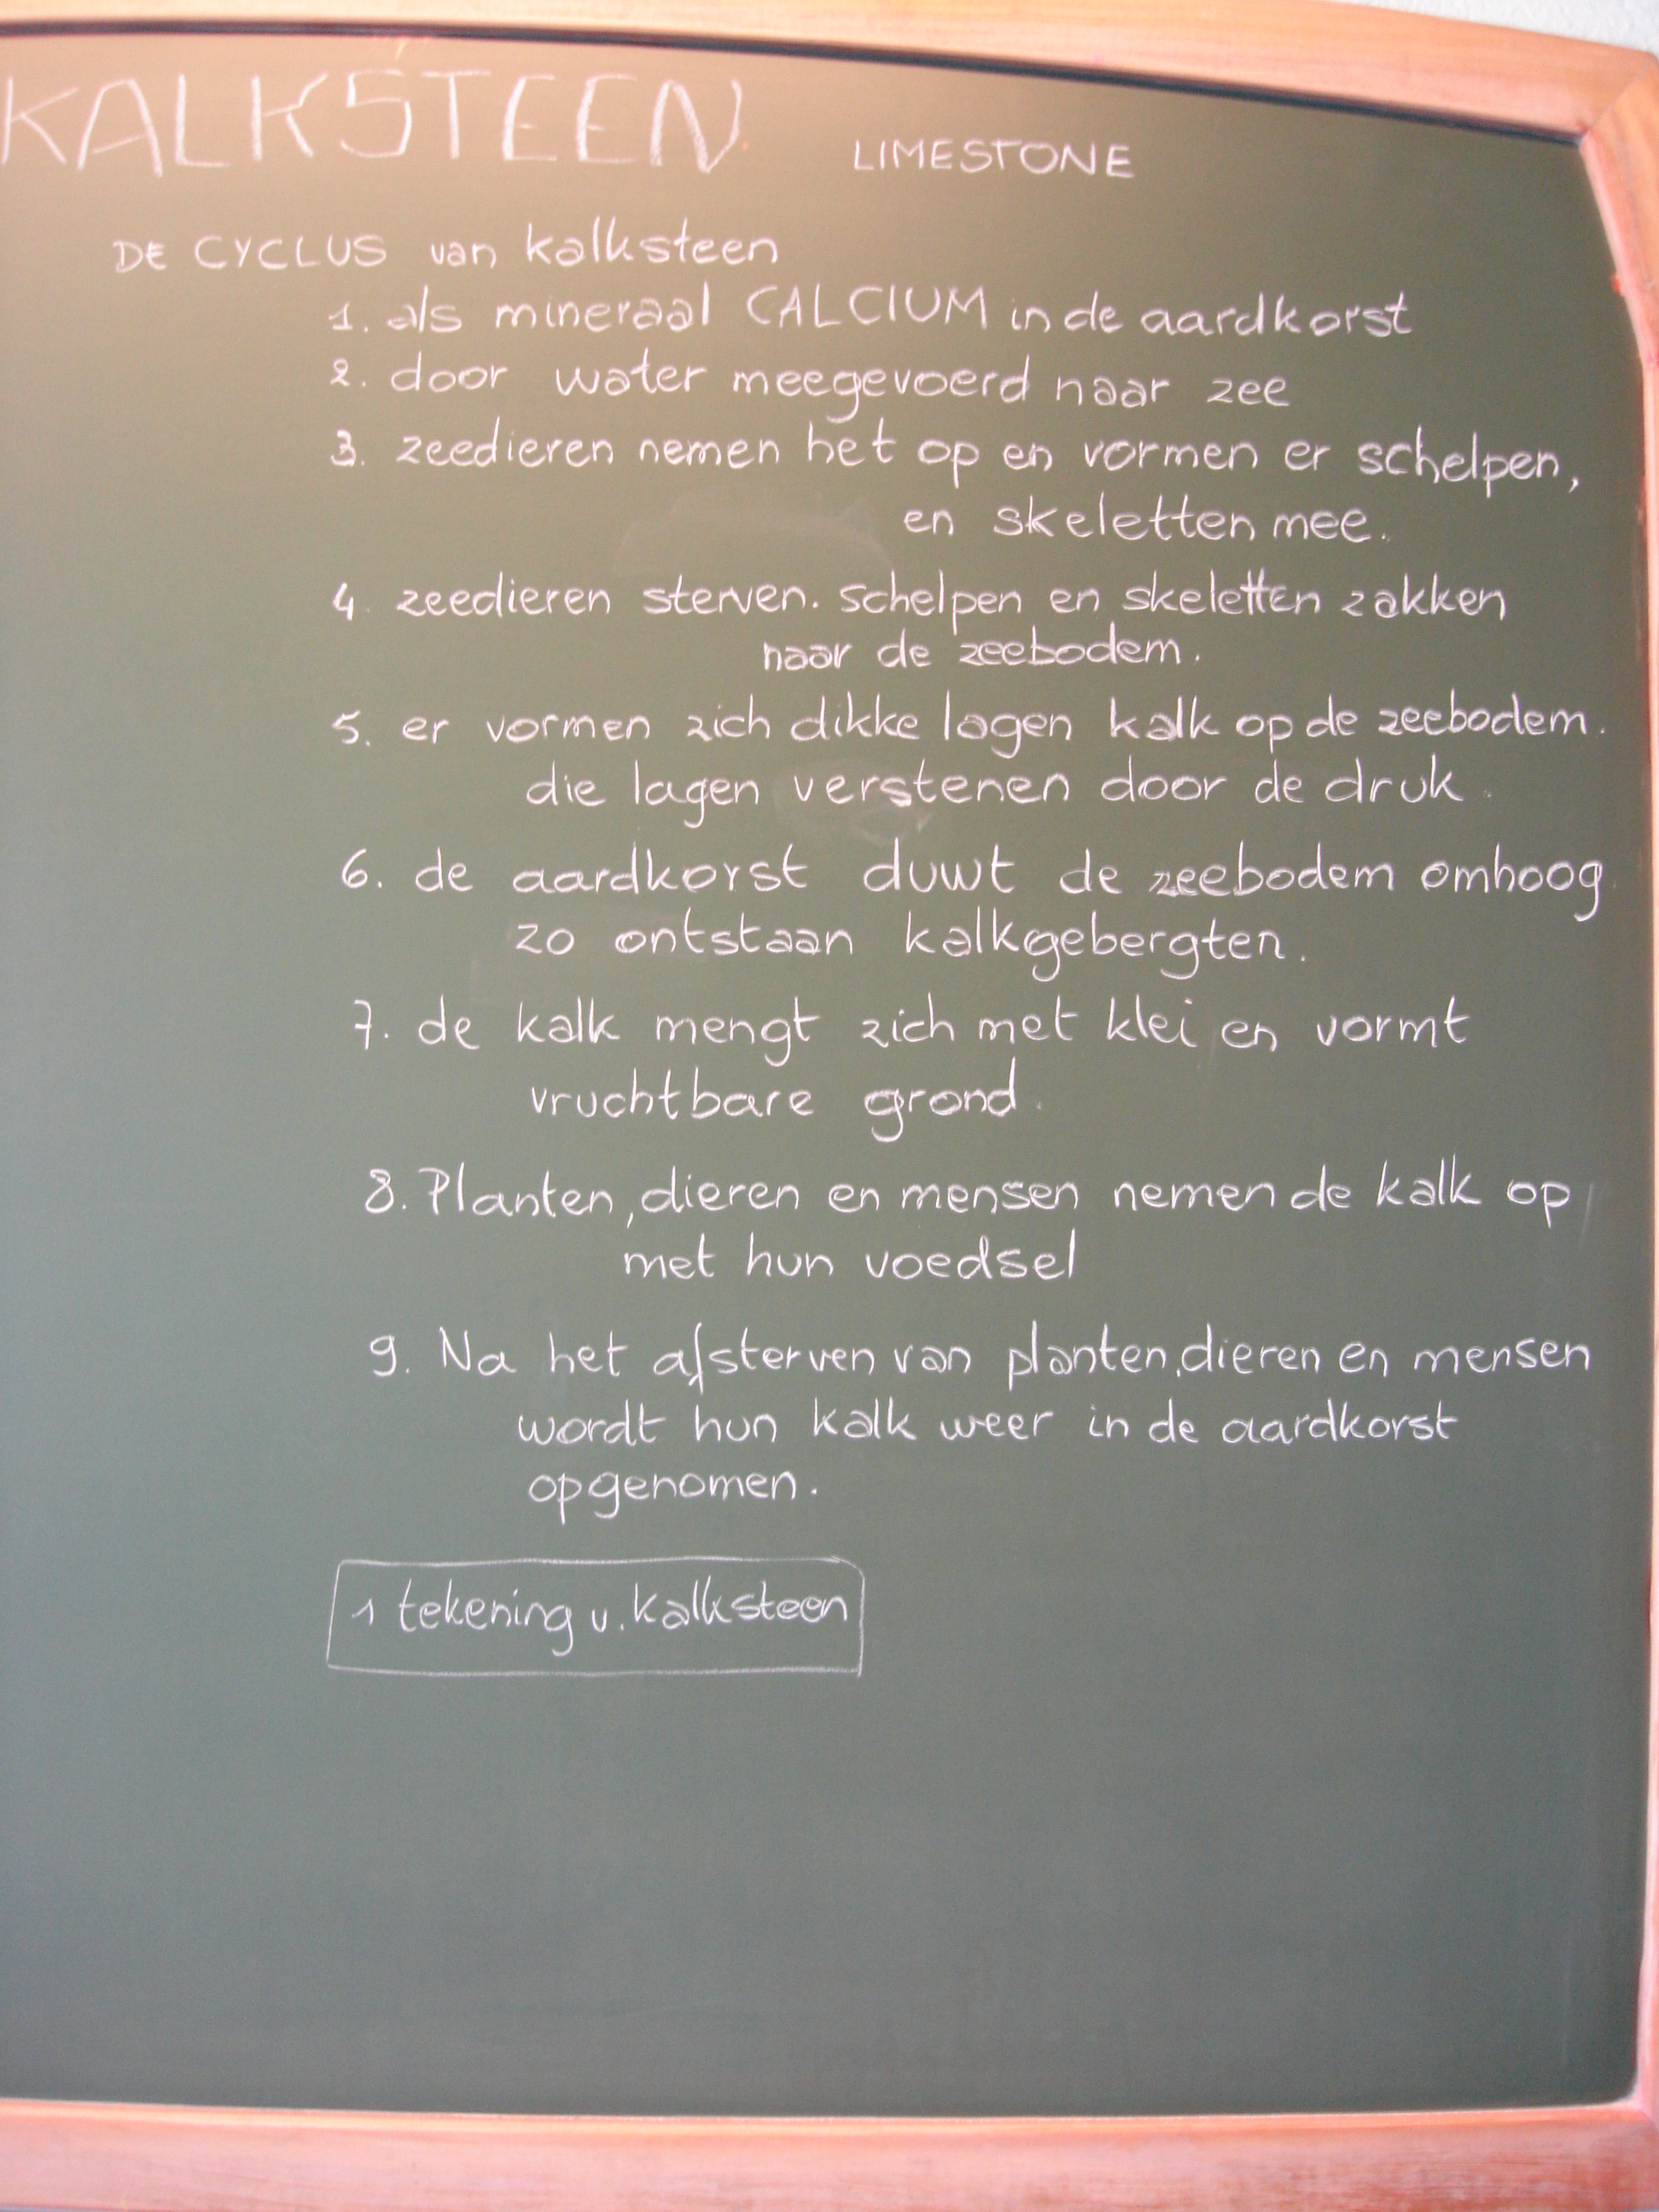 KALKSTEEN LIMESTONE
DE CYCLUS van kalksteen
1. als mineraal CALCIUM in de aardkorst
2. door water meegevoerd naar zee
3. zeedieren nemen het op en vormen er schelpen,
en skeletten mee.
4. zeedieren sterven. schelpen en skeletten zakken
naar de zeebodem.
5. er vormen zich dikke lagen kalk op de zeebodem.
die lagen verstenen door de druk.
6. de aardkorst duwt de zeebodem omhoog
zo ontstaan kalkgebergten.
7. de kalk mengt zich met klei en vormt
vruchtbare grond.
8. Planten, dieren en mensen nemen de kalk op
met hun voedsel
9. Na het afsterven van planten, dieren en mensen
wordt hun kalk weer in de aardkorst
opgenomen.
1 tekening v. kalksteen